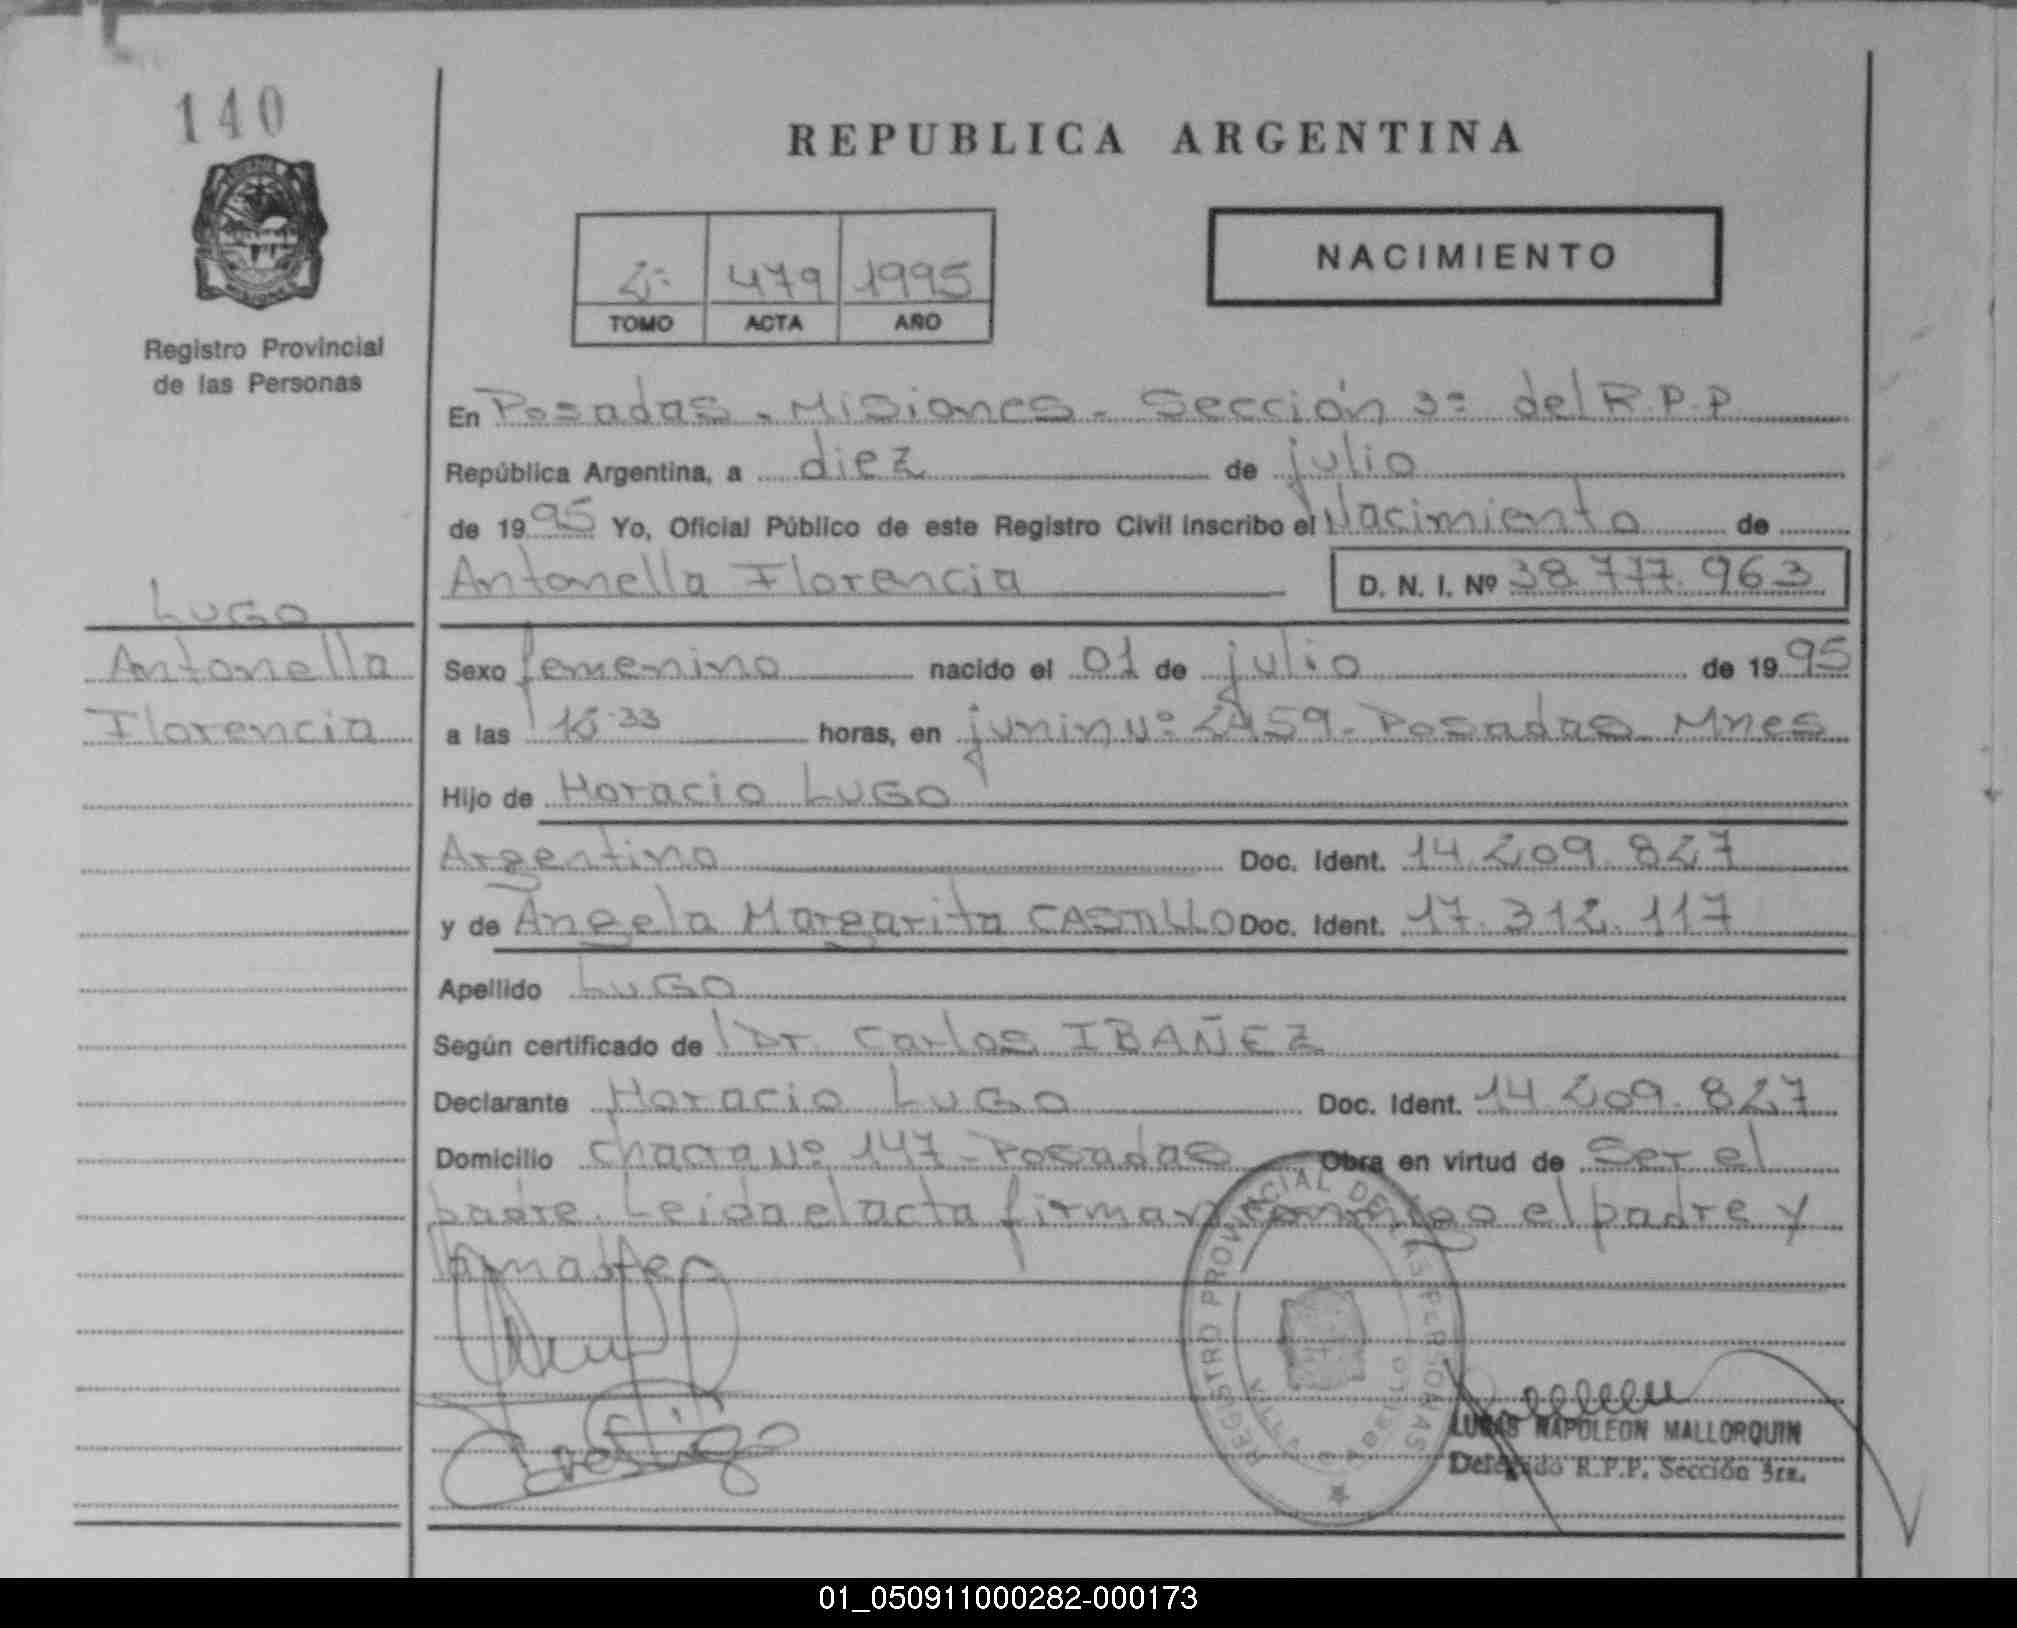 140
REPUBLICA ARGENTINA
2º 479 1995
TOMO ACTA AÑO
NACIMIENTO
Registro Provincial
de las Personas
En Posadas - Misiones - Sección 3º del R.P.P
República Argentina, a diez de julio
de 1995 Yo, Oficial Público de este Registro Civil inscribo el Nacimiento de
Antonella Florencia D. N. I. Nº 38.777.963
LUGO
Antonella
Florencia
Sexo femenino nacido el 01 de julio de 1995
a las horas, en junin Nº 2459 - Posadas Mnes
Hijo de Horacio LUGO
Argentino Doc. Ident. 14.209.827
y de Angela Margarita CASTILLO Doc. Ident. 17.312.117
Apellido LUGO
Según certificado de Dr. Carlos IBAÑEZ
Declarante Horacio LUGO Doc. Ident. 14.209.827
Domicilio chacra Nº 147 - Posadas Obra en virtud de Ser el
padre. Leida el acta firman conmigo el padre y
la madre
REGISTRO PROVINCIAL DE LAS PERSONAS
LUCAS NAPOLEON MALLORQUIN
Delegado R.P.P. Sección 3ra.
01_050911000282-000173